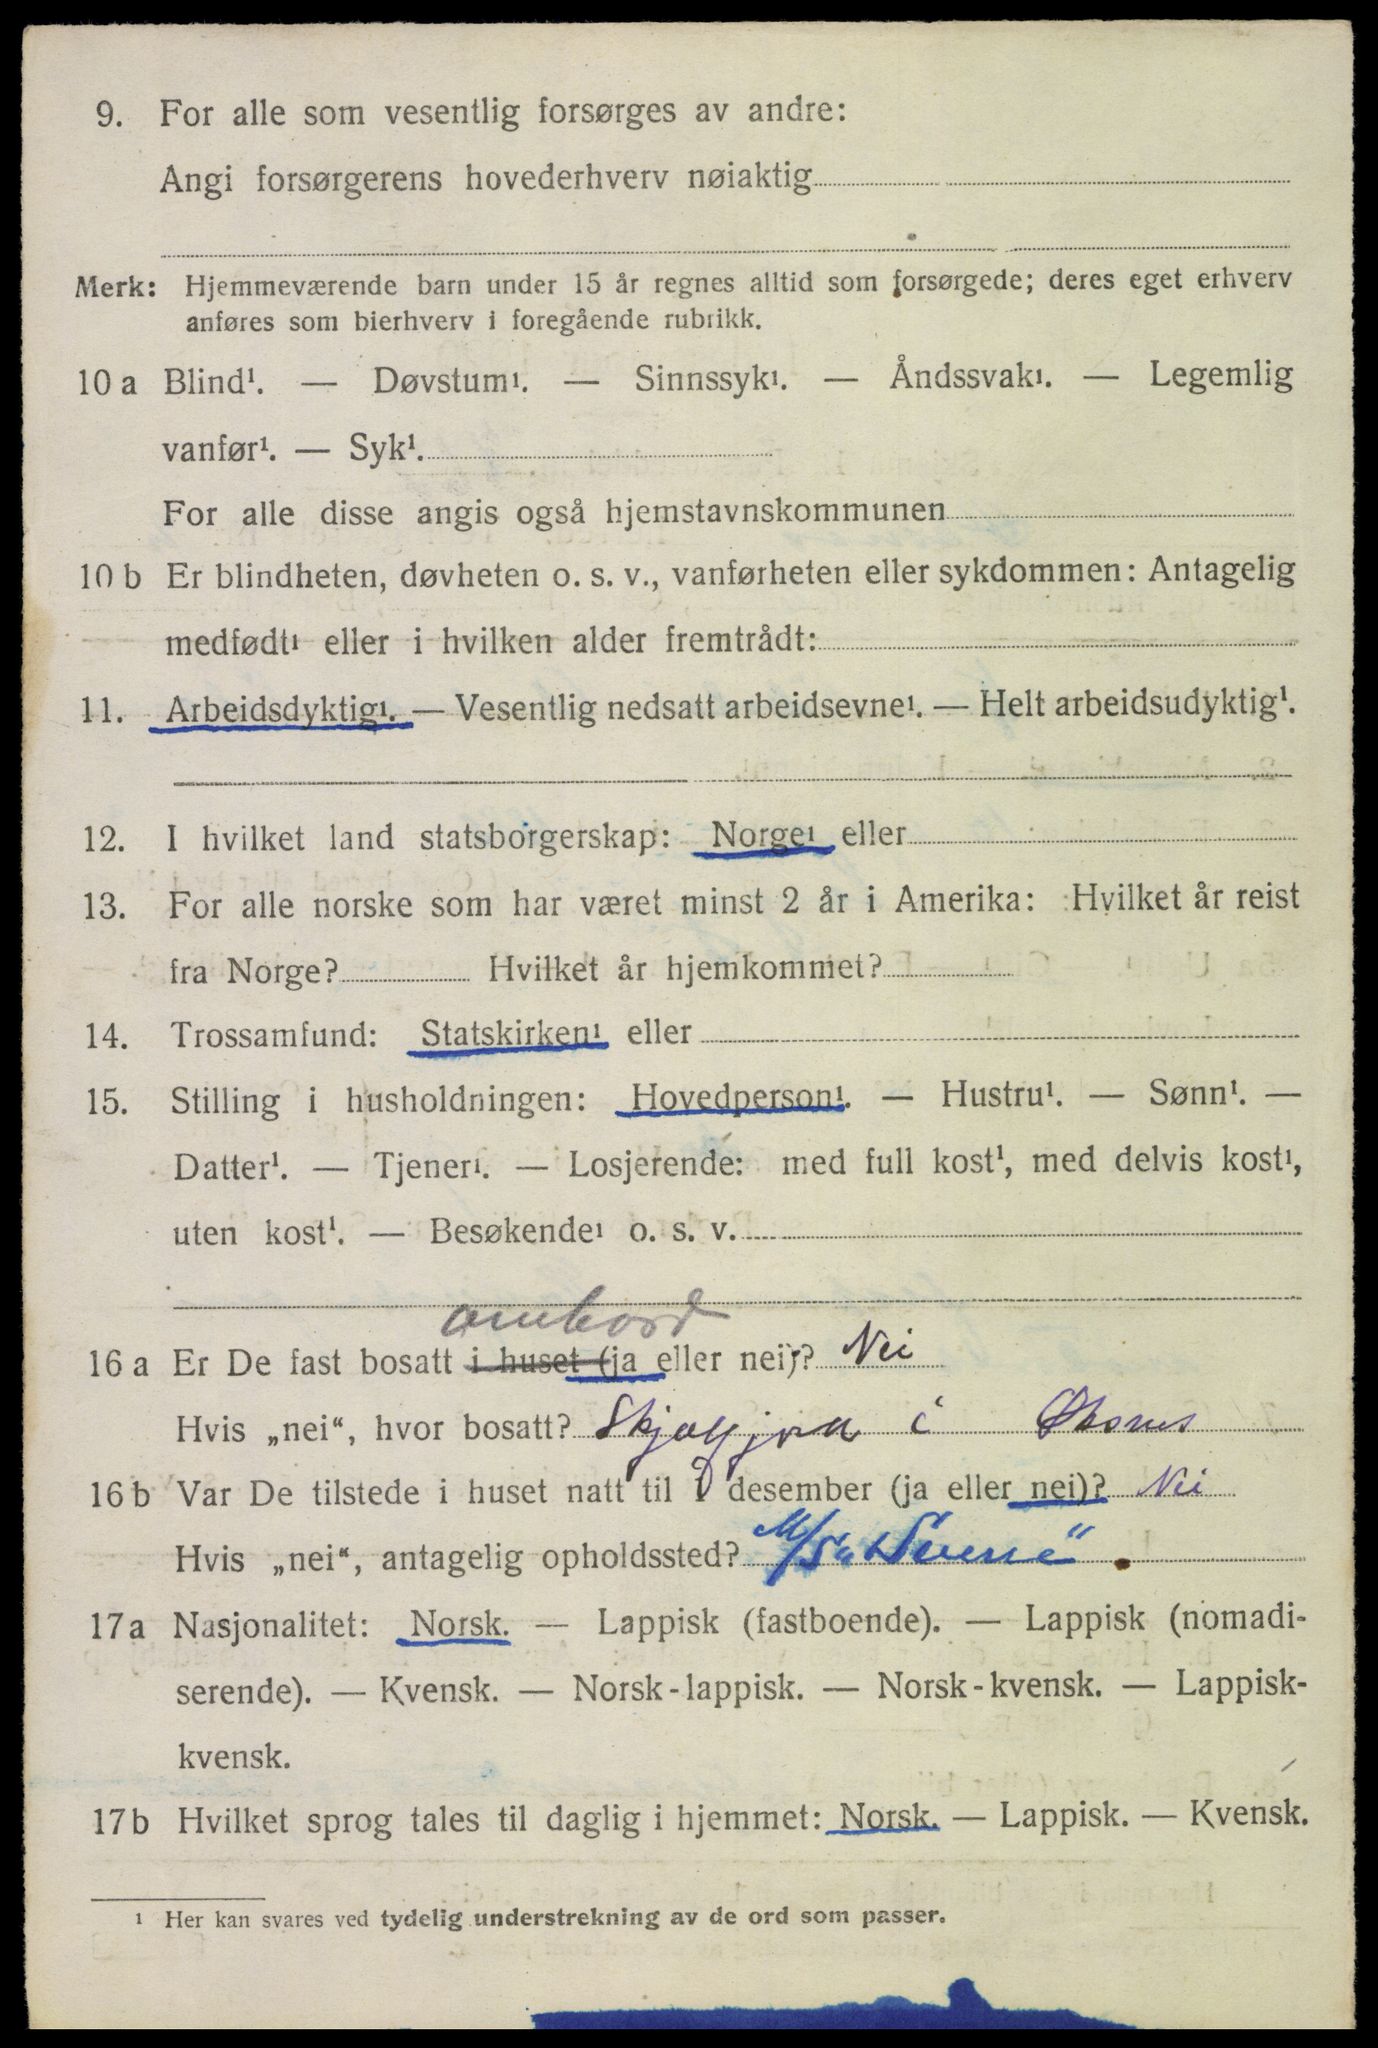 9. For alle som vesentlig forsørges av andre:
Angi forsørgerens hovederhverv nøiaktig
Merk: Hjemmeværende barn under 15 år regnes alltid som forsørgede; deres eget erhverv
anføres som bierhverv i foregående rubrikk.
10 a Blind¹. — Døvstum¹. — Sinnssyk¹. — Åndssvak¹. — Legemlig
vanfør¹. — Syk¹.
For alle disse angis også hjemstavnskommunen
10 b Er blindheten, døvheten o. s. v., vanførheten eller sykdommen: Antagelig
medfødt¹ eller i hvilken alder fremtrådt:
11. Arbeidsdyktig¹. — Vesentlig nedsatt arbeidsevne¹. — Helt arbeidsudyktig¹.
12. I hvilket land statsborgerskap: Norge¹ eller
13. For alle norske som har været minst 2 år i Amerika: Hvilket år reist
fra Norge? Hvilket år hjemkommet?
14. Trossamfund: Statskirken¹ eller
15. Stilling i husholdningen: Hovedperson¹. — Hustru¹. — Sønn¹. —
Datter¹. — Tjener¹. — Losjerende: med full kost¹, med delvis kost¹,
uten kost¹. — Besøkende¹ o. s. v.
ombord
16 a Er De fast bosatt i huset (ja eller nei)? Nei
Hvis „nei“, hvor bosatt? i Øksnes
16 b Var De tilstede i huset natt til 1 desember (ja eller nei)? Nei
Hvis „nei“, antagelig opholdssted? M/S
17 a Nasjonalitet: Norsk. — Lappisk (fastboende). — Lappisk (nomadi-
serende). — Kvensk. — Norsk-lappisk. — Norsk-kvensk. — Lappisk-
kvensk.
17 b Hvilket sprog tales til daglig i hjemmet: Norsk. — Lappisk. — Kvensk.
¹ Her kan svares ved tydelig understrekning av de ord som passer.